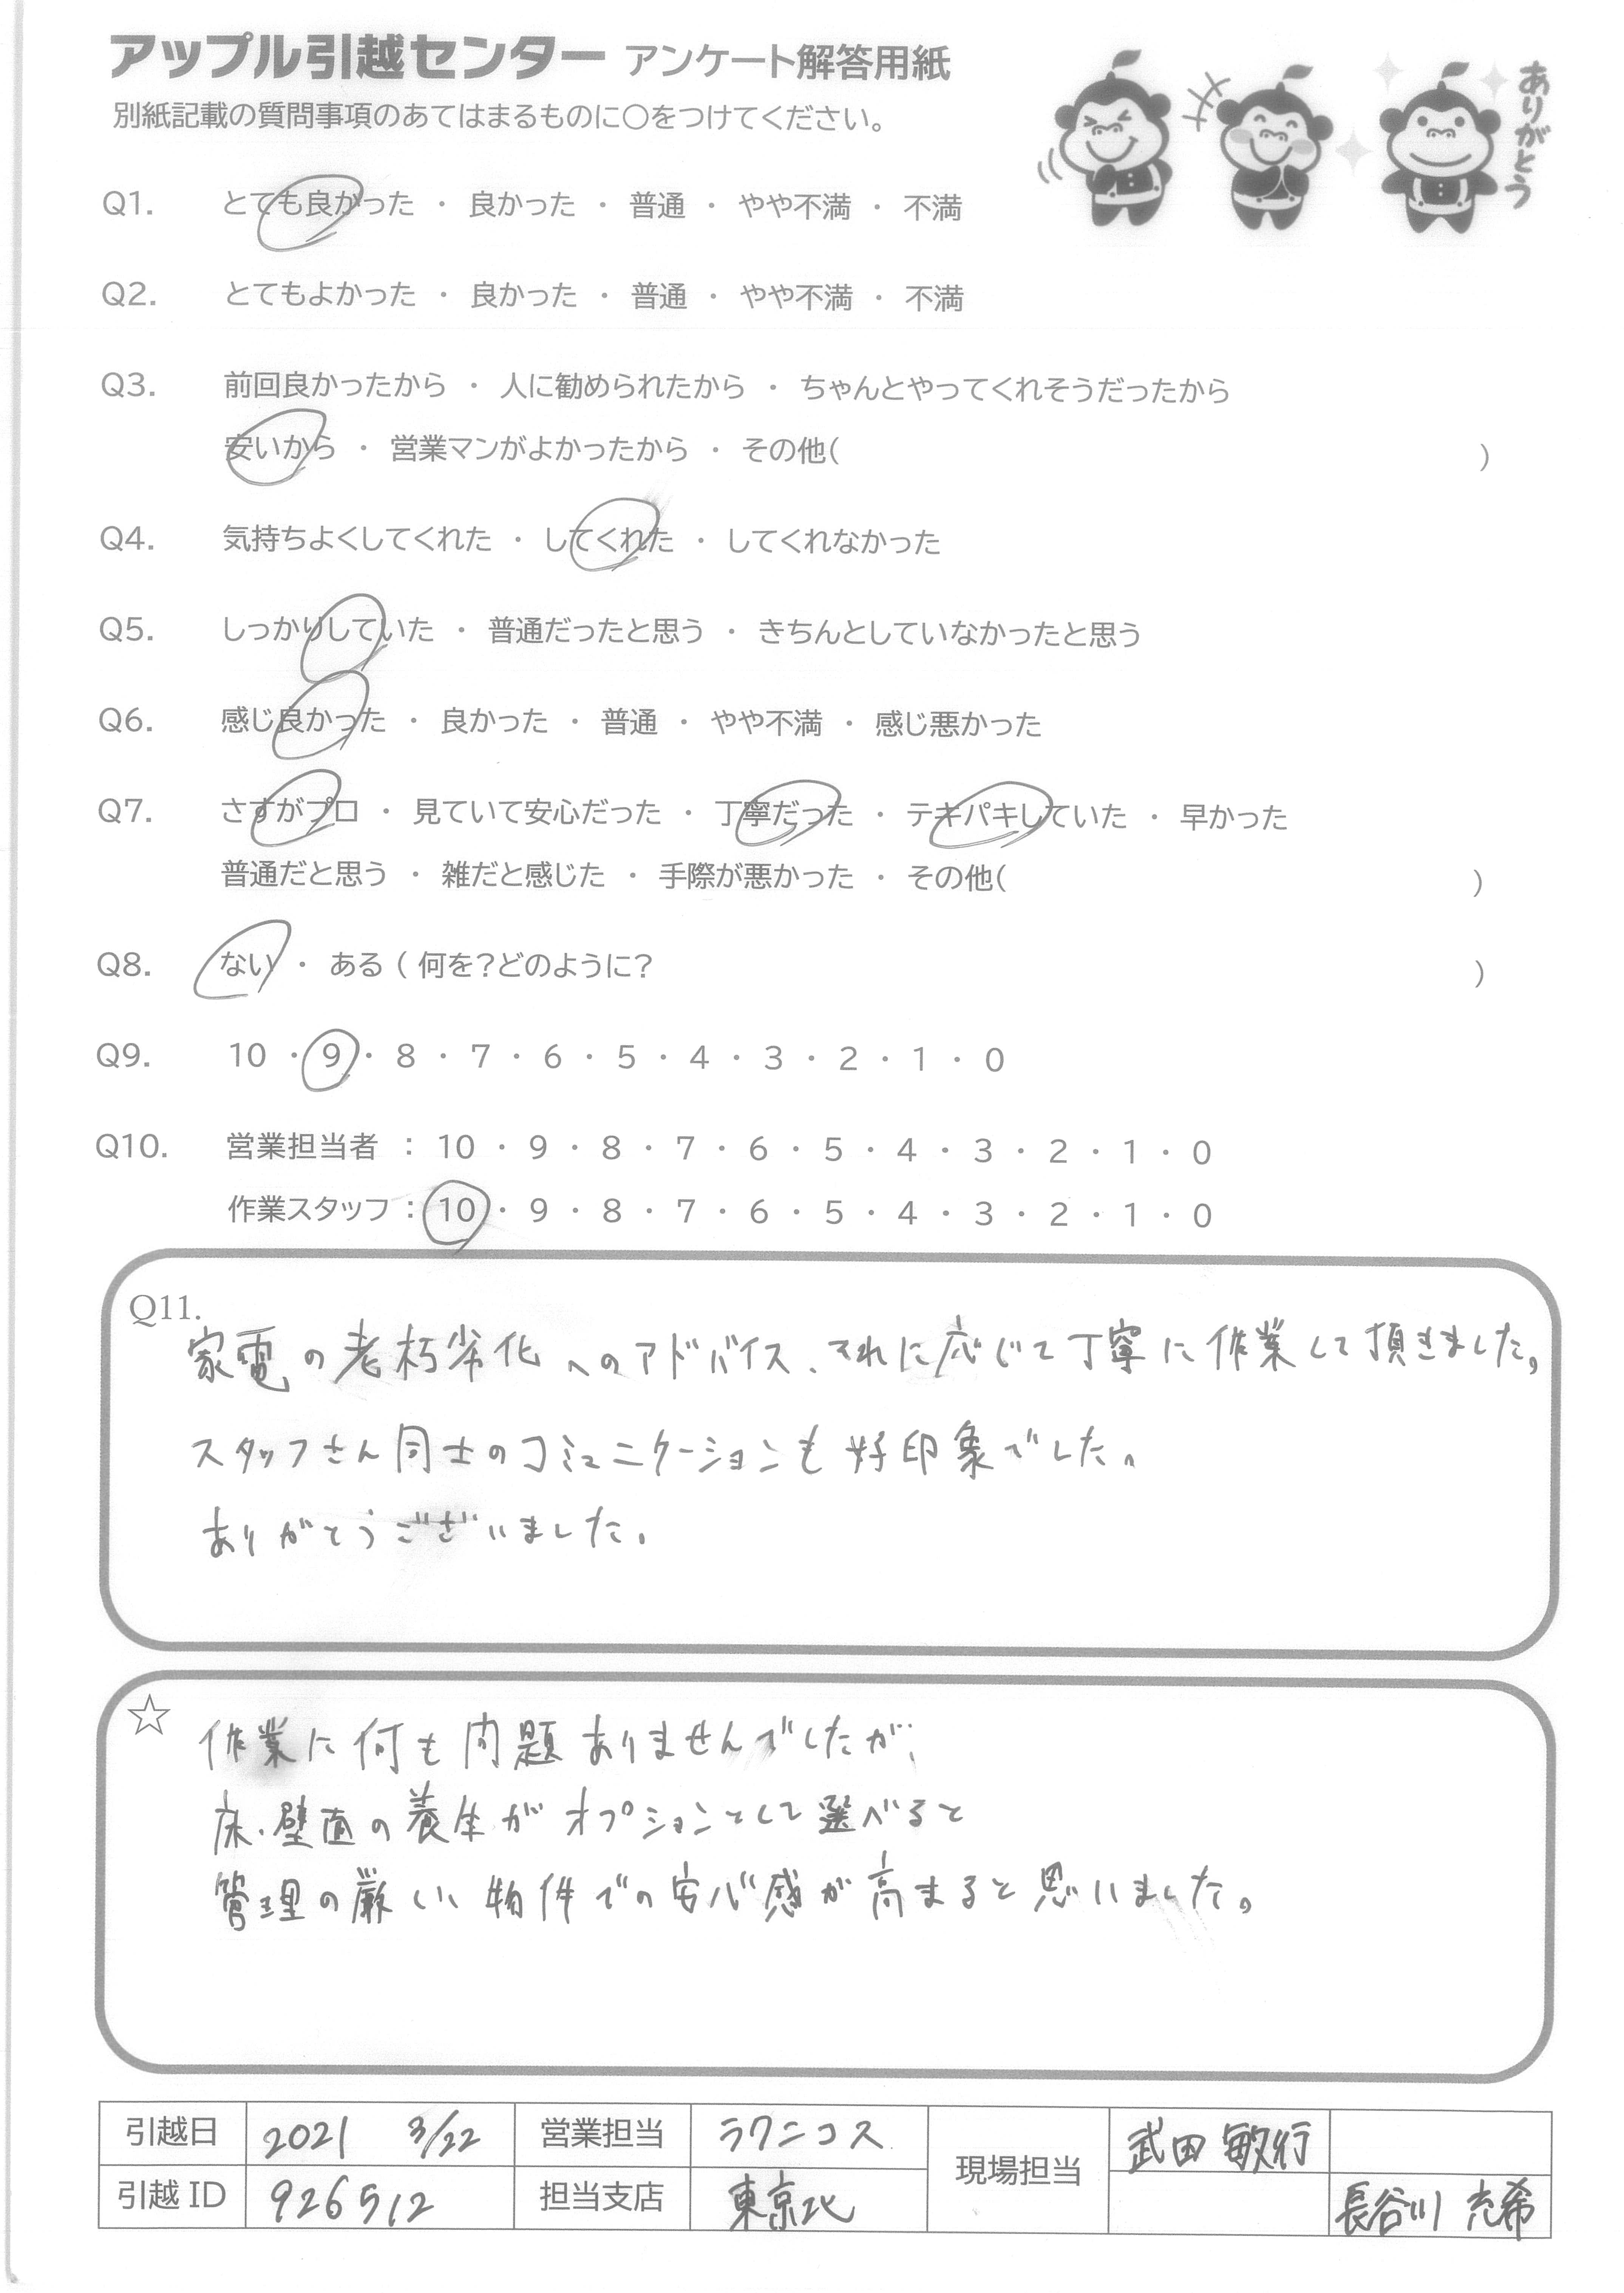 アップル引越センター アンケート解答用紙
別紙記載の質問事項のあてはまるものに○をつけてください。
ありがとう
Q1. とても良かった ・ 良かった ・ 普通 ・ やや不満 ・ 不満
Q2. とてもよかった ・ 良かった ・ 普通 ・ やや不満 ・ 不満
Q3. 前回良かったから ・ 人に勧められたから ・ ちゃんとやってくれそうだったから
安いから ・ 営業マンがよかったから ・ その他( )
Q4. 気持ちよくしてくれた ・ してくれた ・ してくれなかった
Q5. しっかりしていた ・ 普通だったと思う ・ きちんとしていなかったと思う
Q6. 感じ良かった ・ 良かった ・ 普通 ・ やや不満 ・ 感じ悪かった
Q7. さすがプロ ・ 見ていて安心だった ・ 丁寧だった ・ テキパキしていた ・ 早かった
普通だと思う ・ 雑だと感じた ・ 手際が悪かった ・ その他( )
Q8. ない ・ ある ( 何を?どのように? )
Q9. 10 ・ 9 ・ 8 ・ 7 ・ 6 ・ 5 ・ 4 ・ 3 ・ 2 ・ 1 ・ 0
Q10. 営業担当者 : 10 ・ 9 ・ 8 ・ 7 ・ 6 ・ 5 ・ 4 ・ 3 ・ 2 ・ 1 ・ 0
作業スタッフ : 10 ・ 9 ・ 8 ・ 7 ・ 6 ・ 5 ・ 4 ・ 3 ・ 2 ・ 1 ・ 0
Q11.
家電の老朽劣化へのアドバイス、それに応じて丁寧に作業して頂きました。
スタッフさん同士のコミュニケーションも好印象でした。
ありがとうございました。
☆
作業に何も問題ありませんでしたが、
床・壁面の養生がオプションとして選べると
管理の厳しい物件での安心感が高まると思いました。
引越日 2021 3/22 営業担当 ラクニコス 現場担当 武田 敏行
引越 ID 926512 担当支店 東京北 長谷川 充希